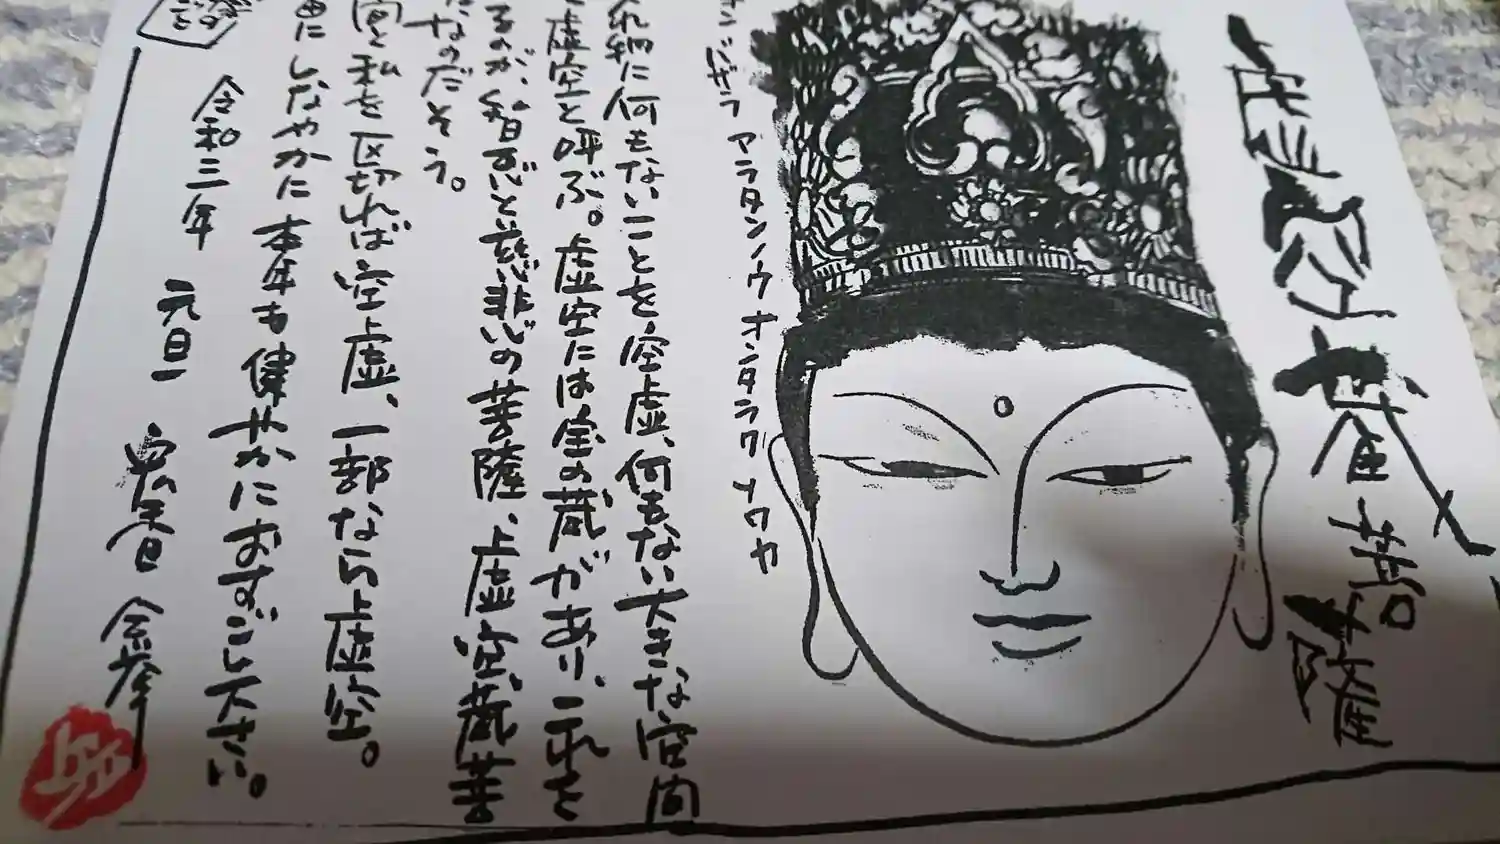 虚空蔵菩薩
アラタンノウ オンタラク ソワカ
れ物に何もないことを空虚、何もない大きな空間
虚空と呼ぶ。虚空には宝の蔵があり、これを
るのが、智恵と慈悲の菩薩、虚空蔵菩
なのだそう。
間と私を区切れば空虚、一部なら虚空。
にしなやかに本年も健やかにおすごし下さい。
令和三年 元旦